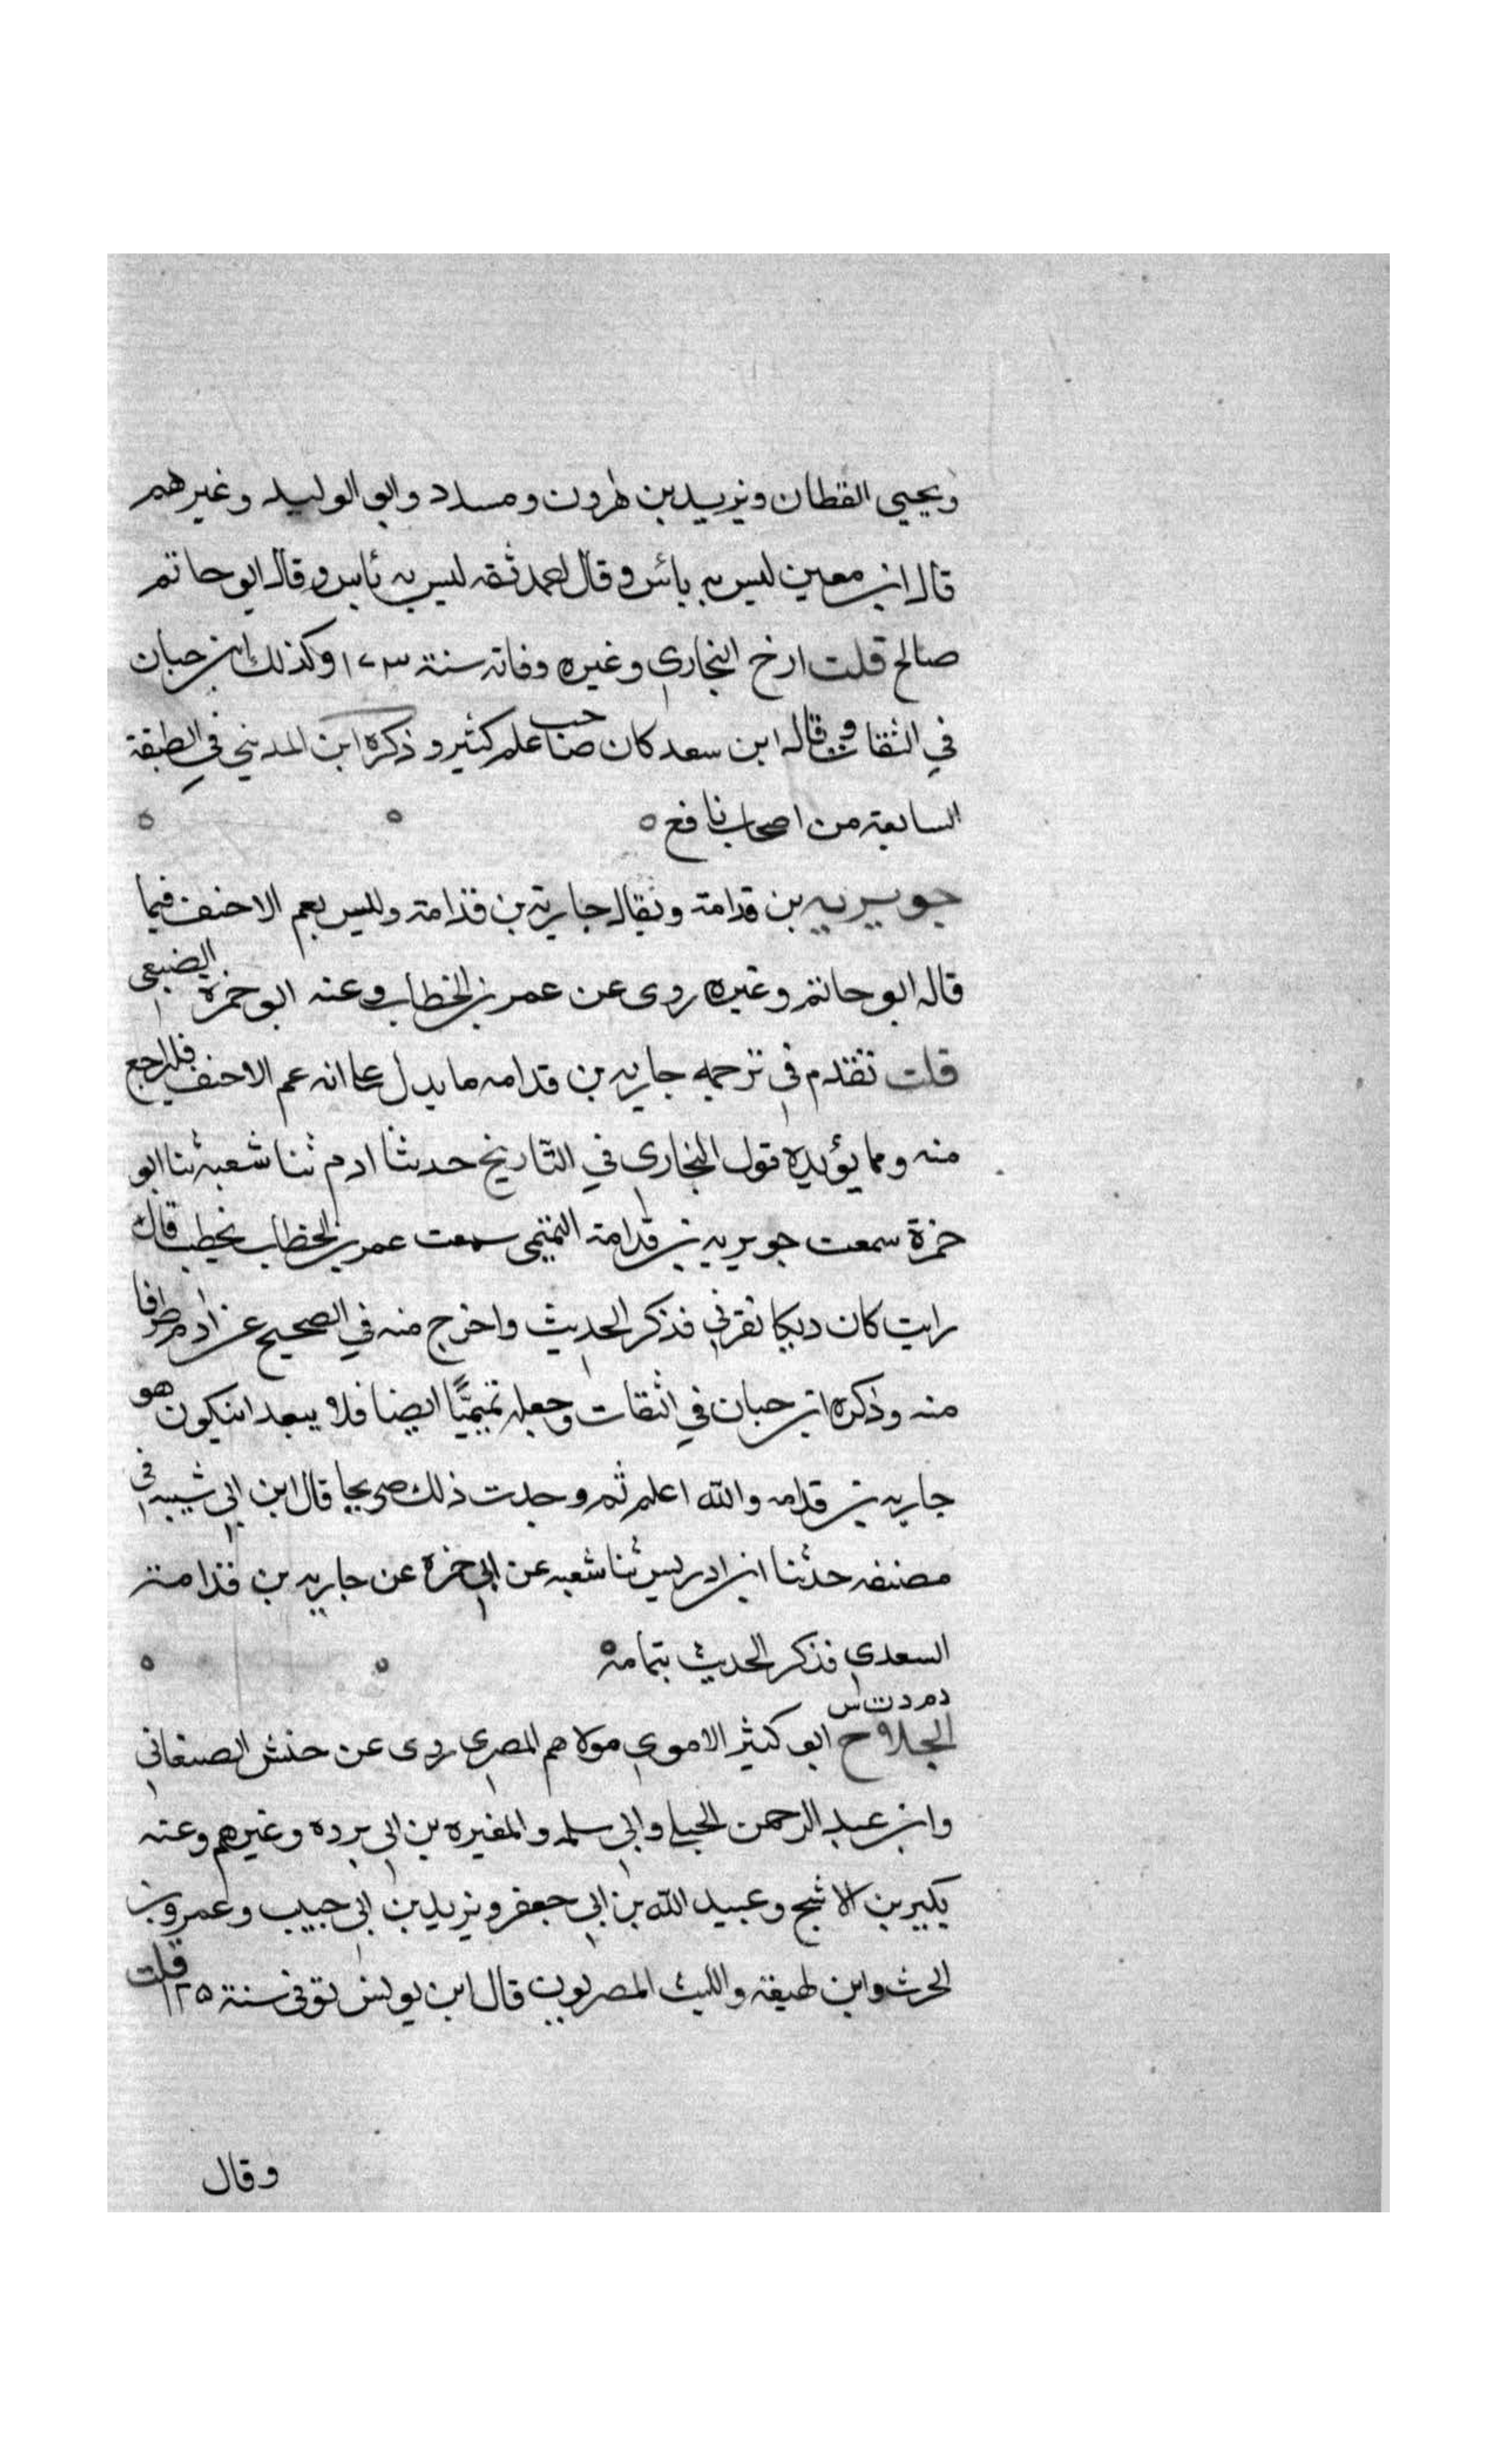 ويحيى القطان ويزيد بن هرون ومسدد وابو الوليد وغيرهم
قال ابن معين ليس به باس وقال احمد ثقه ليس به باس وقال ابو حاتم
صالح قلت ارخ البخاري وغيره وفاته سنة ١٧٣ وكذلك ابن حبان
في الثقات وقال ابن سعد كان صاحب علم كثير وذكره ابن المديني في الطبقة
السابعة من اصحاب نافع ٥ ٥ ٥
جويرية بن قدامة ويقال جارية بن قدامة وليس بعم الاحنف فيما
قاله ابو حاتم وغيره روى عن عمر بن الخطاب وعنه ابو جمرة الضبعي
قلت تقدم في ترجمه جاريه بن قدامه ما يدل على انه عم الاحنف فليراجع
منه ومما يؤيده قول البخاري في التاريخ حدثنا ادم ثنا شعبة ثنا ابو
جمرة سمعت جويرية بن قدامة التميمي سمعت عمر بن الخطاب يخطب قال
رايت كان ديكا نقرني فذكر الحديث واخرج منه في الصحيح عن ادم طرفا
منه وذكره ابن حبان في الثقات وجعله تميميًّا ايضا فلا يبعد ان يكون هو
جاريه بن قدامه والله اعلم ثم وجدت ذلك صريحا قال ابن ابي شيبه في
مصنفه حدثنا ابن ادريس ثنا شعبه عن ابي جمرة عن جاريه بن قدامة
السعدي فذكر الحديث بتمامه ٥ ٥ ٥
م د ت س
الجلاح ابو كثير الاموي مولاهم المصري روى عن حنش الصنعاني
وابن عبد الرحمن الحبلي وابي سلمه والمغيره بن ابي برده وغيرهم وعنه
بكير بن الاشج وعبيد الله بن ابي جعفر ويزيد بن ابي حبيب وعمرو بن
الحرث وابن لهيعة والليث المصريون قال ابن يونس توفي سنة ١٢٥ قلت
وقال